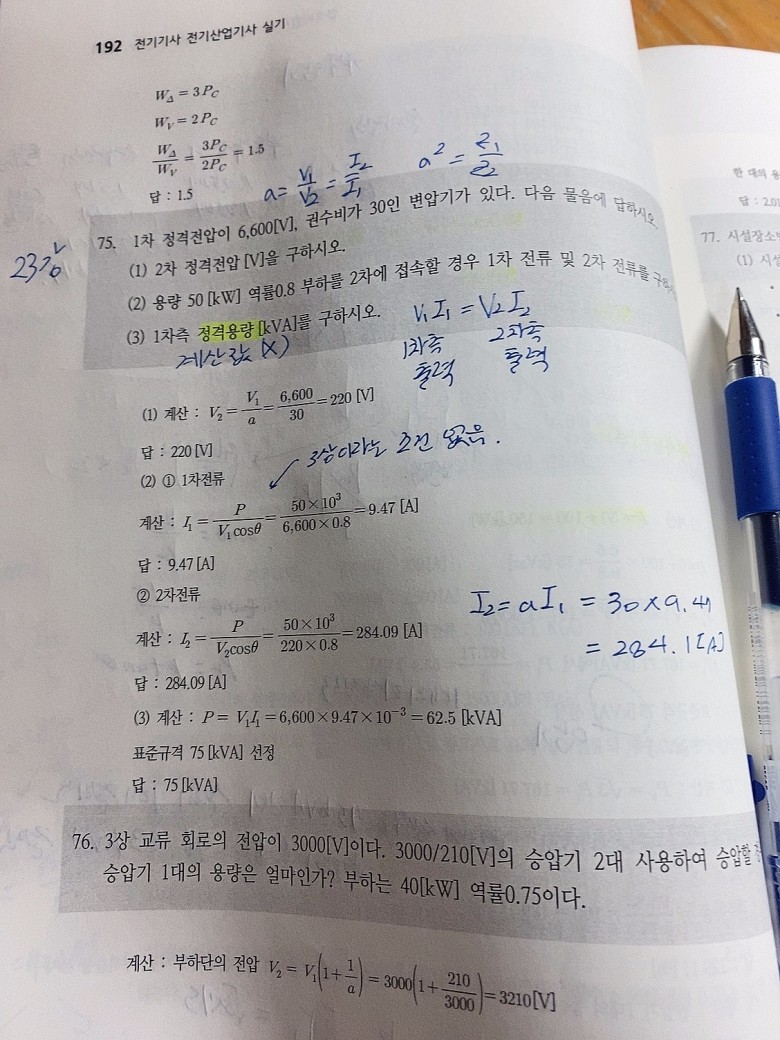 192 전기기사 전기산업기사 실기
W_Δ = 3P_C
W_V = 2P_C
W_Δ/W_V = 3P_C/2P_C = 1.5
답 : 1.5
a = V₁/V₂ = I₂/I₁
a² = Z₁/Z₂
75. 1차 정격전압이 6,600[V], 권수비가 30인 변압기가 있다. 다음 물음에 답하시오.
(1) 2차 정격전압 [V]을 구하시오.
(2) 용량 50 [kW] 역률0.8 부하를 2차에 접속할 경우 1차 전류 및 2차 전류를
(3) 1차측 정격용량 [kVA]를 구하시오.
계산값 (X)
V₁I₁ = V₂I₂
1차측 2차측
출력 출력
(1) 계산 : V₂ = V₁/a = 6,600/30 = 220 [V]
답 : 220 [V]
3상이라는 조건 없음.
(2) ① 1차전류
계산 : I₁ = P/V₁cosθ = 50×10³/6,600×0.8 = 9.47 [A]
답 : 9.47 [A]
② 2차전류
계산 : I₂ = P/V₂cosθ = 50×10³/220×0.8 = 284.09 [A]
I₂ = aI₁ = 30×9.47
= 284.1 [A]
답 : 284.09 [A]
(3) 계산 : P = V₁I₁ = 6,600×9.47×10⁻³ = 62.5 [kVA]
표준규격 75 [kVA] 선정
답 : 75 [kVA]
76. 3상 교류 회로의 전압이 3000[V]이다. 3000/210[V]의 승압기 2대 사용하여 승압할
승압기 1대의 용량은 얼마인가? 부하는 40[kW] 역률0.75이다.
계산 : 부하단의 전압 V₂ = V₁(1+1/a) = 3000(1+210/3000) = 3210[V]
한 대의
답 : 2.01
77. 시설장소
(1) 시설